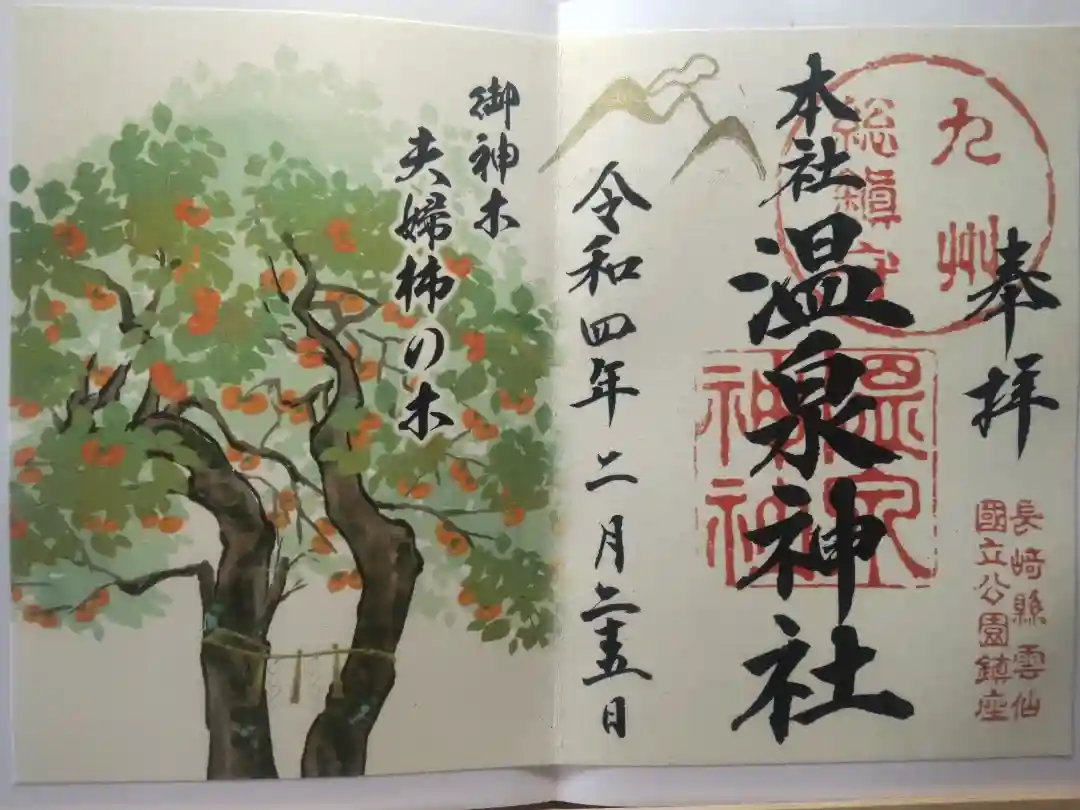 奉拝
九州
総鎮守
本社
温泉神社
温泉
神社
長崎縣雲仙
國立公園鎮座
令和四年二月二十五日
御神木
夫婦柿の木